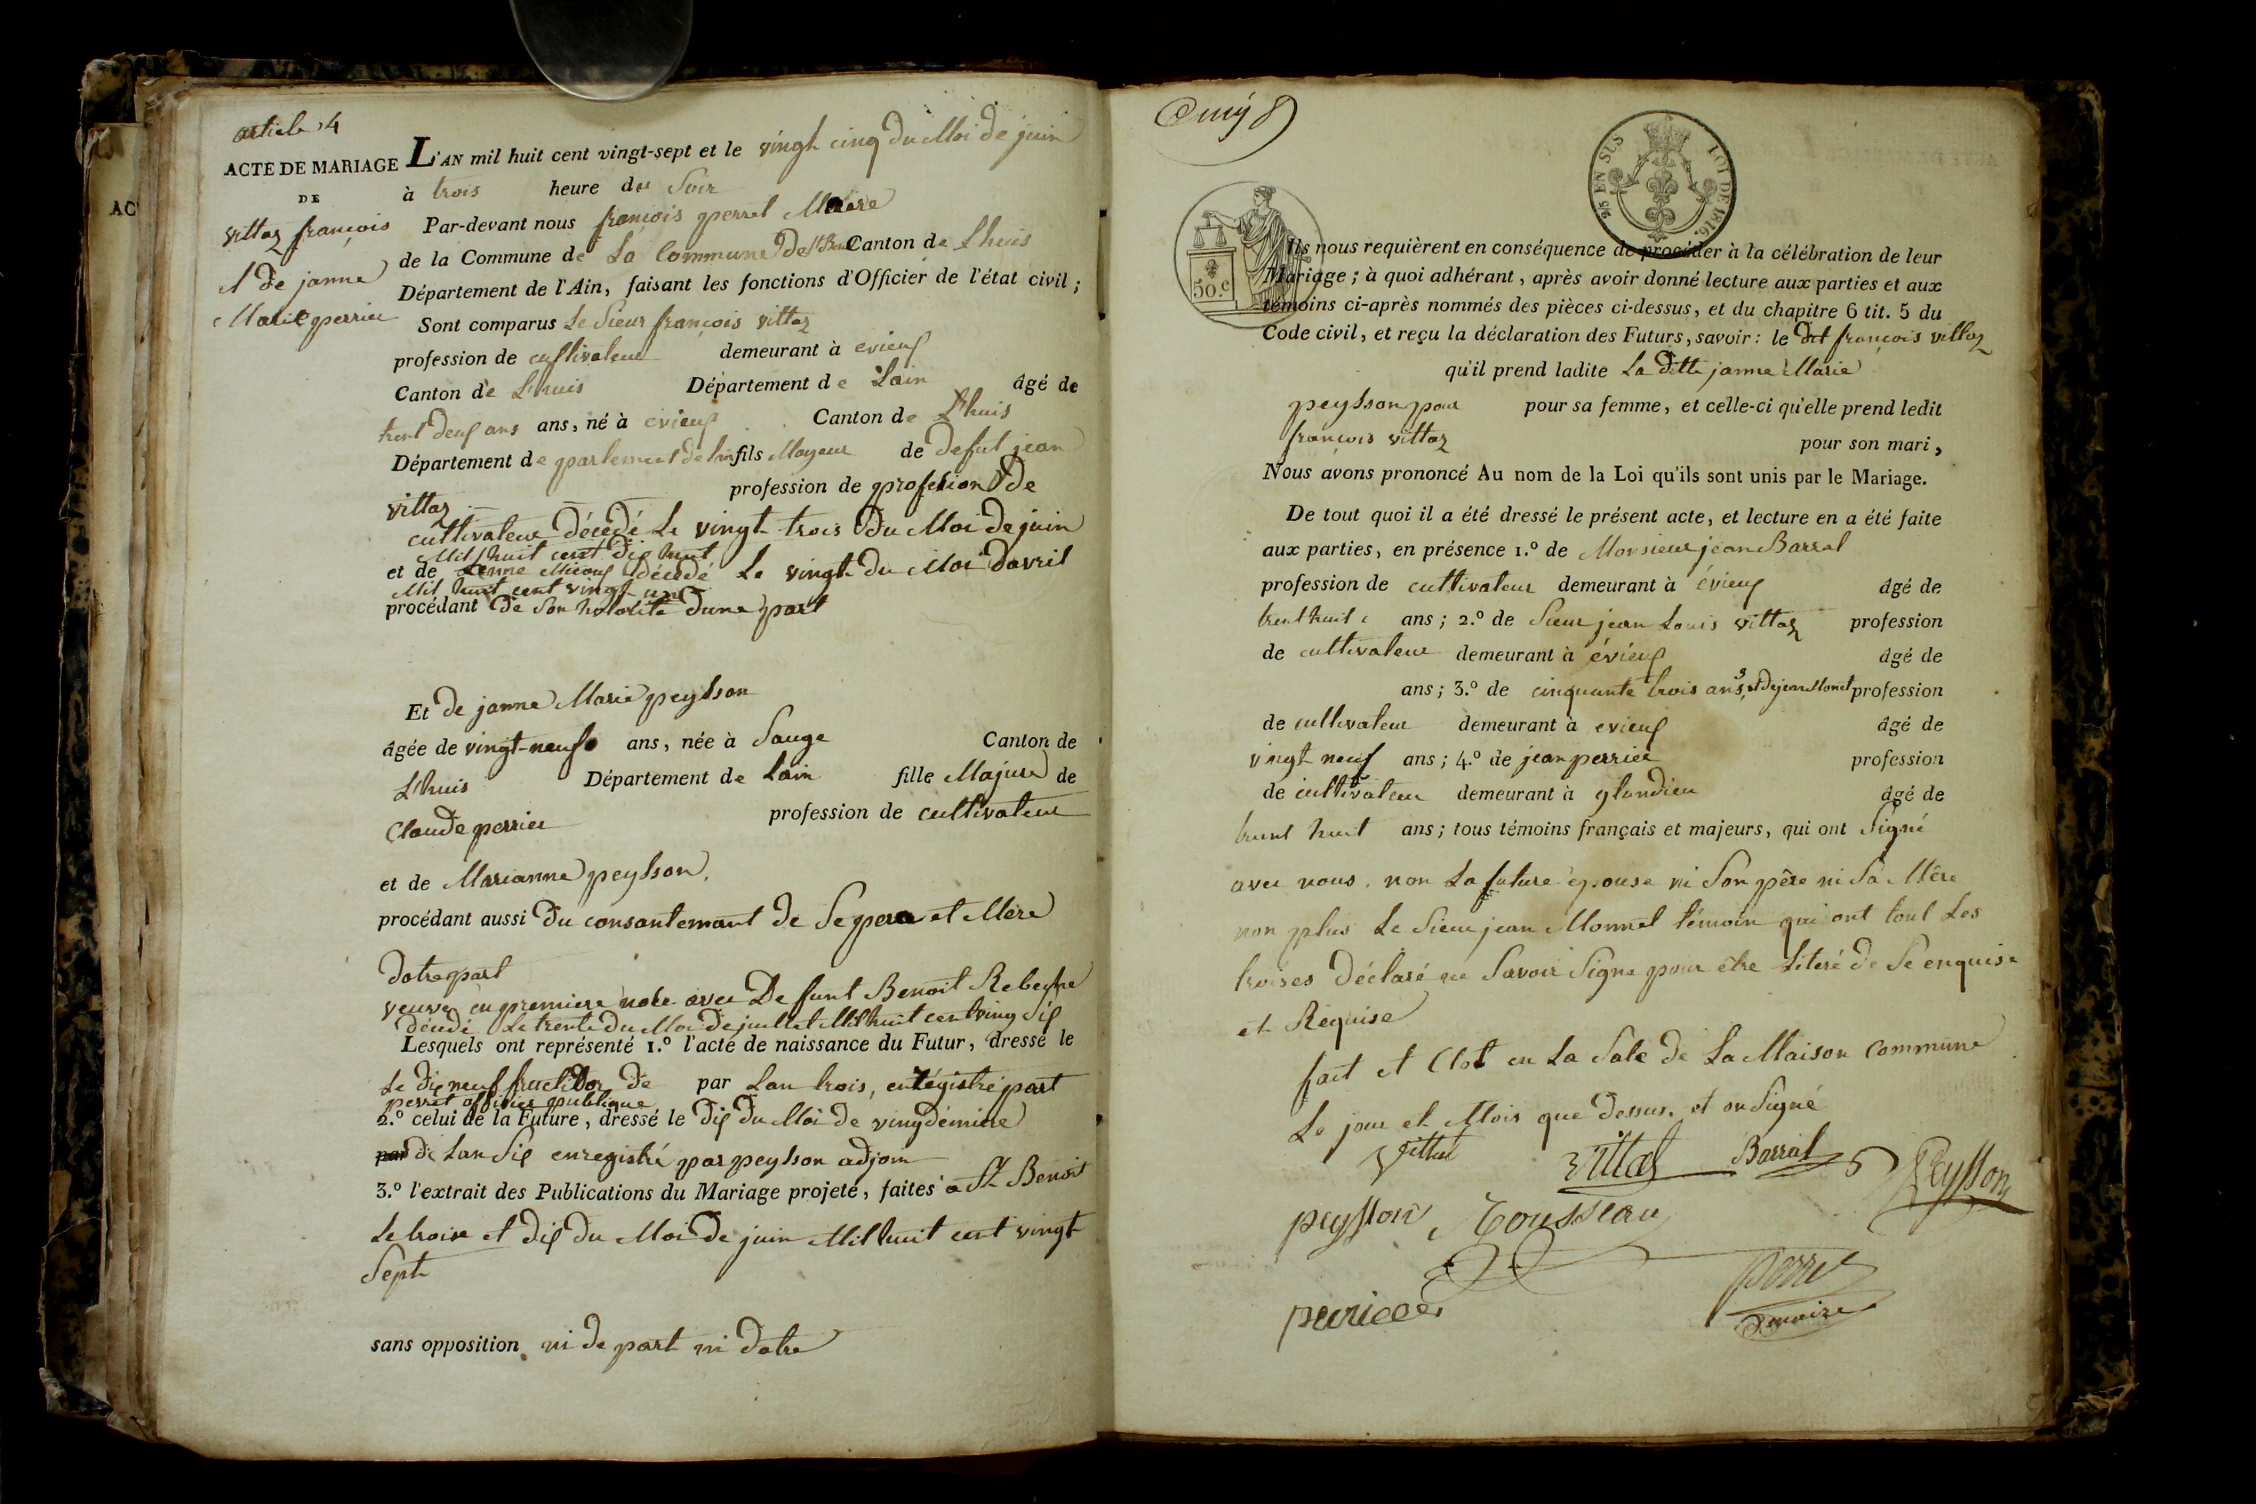 article 4
ACTE DE MARIAGE
DE
vittoz françois
et de janne
Marie perrier
L'AN mil huit cent vingt-sept et le vingt cinq du Moi de juin
à trois heure du Soir
Par-devant nous françois perret Maire
de la Commune de La Commune de St Ben Canton de Lhuis
Département de l'Ain, faisant les fonctions d'Officier de l'état civil ;
Sont comparus Le Sieur françois vittoz
profession de cultivateur demeurant à evieux
Canton de L'huis Département de Lain âgé de
trent deux ans ans, né à evieux Canton de L'huis
Département de partement de Lain fils Mayeur de defut jean
vittoz profession de profession De
cultivateur décédé Le vingt trois Du Moi de juin
Mil huit cent dix huit
et de décédé Le vingt du Moi Davril
Mil huit cent vingt un
procédant De Son Dune part
Et de janne Marie peysson
âgée de vingt-neuf ans, née à Sauge Canton de
L'huis Département de Lain fille Majure de
Claude perrier profession de cultivateur
et de Marianne peysson.
procédant aussi Du consantemant de Se pere et Mère
Dotre part
veuve en premiere noke avec De funt Benoit Rebeyhe
décédé Le trente du Moi de juillet Mil huit cent ving Six
Lesquels ont représenté 1.º l'acte de naissance du Futur, dressé le
Le dix neuf fructidor de par Lan trois, enregistré part
perret officier publique
2.º celui de la Future, dressé le Dix Du Moi de vingdémiere
de Lan Six enregistré par peysson adjoin
3.º l'extrait des Publications du Mariage projeté, faites à St Benoit
Le troise et dix du Moi De juin Mil huit cent vingt
Sept
sans opposition ni de part ni Dotre
50.c
95 EN SUS LOI DE 1816.
Ils nous requièrent en conséquence de procéder à la célébration de leur
Mariage ; à quoi adhérant, après avoir donné lecture aux parties et aux
témoins ci-après nommés des pièces ci-dessus, et du chapitre 6 tit. 5 du
Code civil, et reçu la déclaration des Futurs, savoir : le dit françois vittoz
qu'il prend ladite La ditte janne Marie
peysson pour pour sa femme, et celle-ci qu'elle prend ledit
françois vittoz pour son mari,
Nous avons prononcé Au nom de la Loi qu'ils sont unis par le Mariage.
De tout quoi il a été dressé le présent acte, et lecture en a été faite
aux parties, en présence 1.º de Monsieur jean Barral
profession de cultivateur demeurant à évieux âgé de
trent huit ans ; 2.º de Sieur jean Louis vittoz profession
de cultivateur demeurant à évieux âgé de
ans ; 3.º de cinquante trois ans, et de jean Monet profession
de cultivateur demeurant à evieux âgé de
vingt neuf ans ; 4.º de jean perrier profession
de cultivateur demeurant à glandieu âgé de
trent huit ans ; tous témoins français et majeurs, qui ont Signé
avec nous. non La future épouse ni Son père ni Sa Mère
non plus Le Sieur jean Monnet témoin qui ont tout Les
troises déclaré ne Savoir Signe pour être Literé de Se enquise
et Requise
fait et Clot en La Sale de La Maison Commune
Le jour et Mois que dessus. et on Signé
vittoz Barral Peysson
peysson Cousseau
perrier Perret
maire